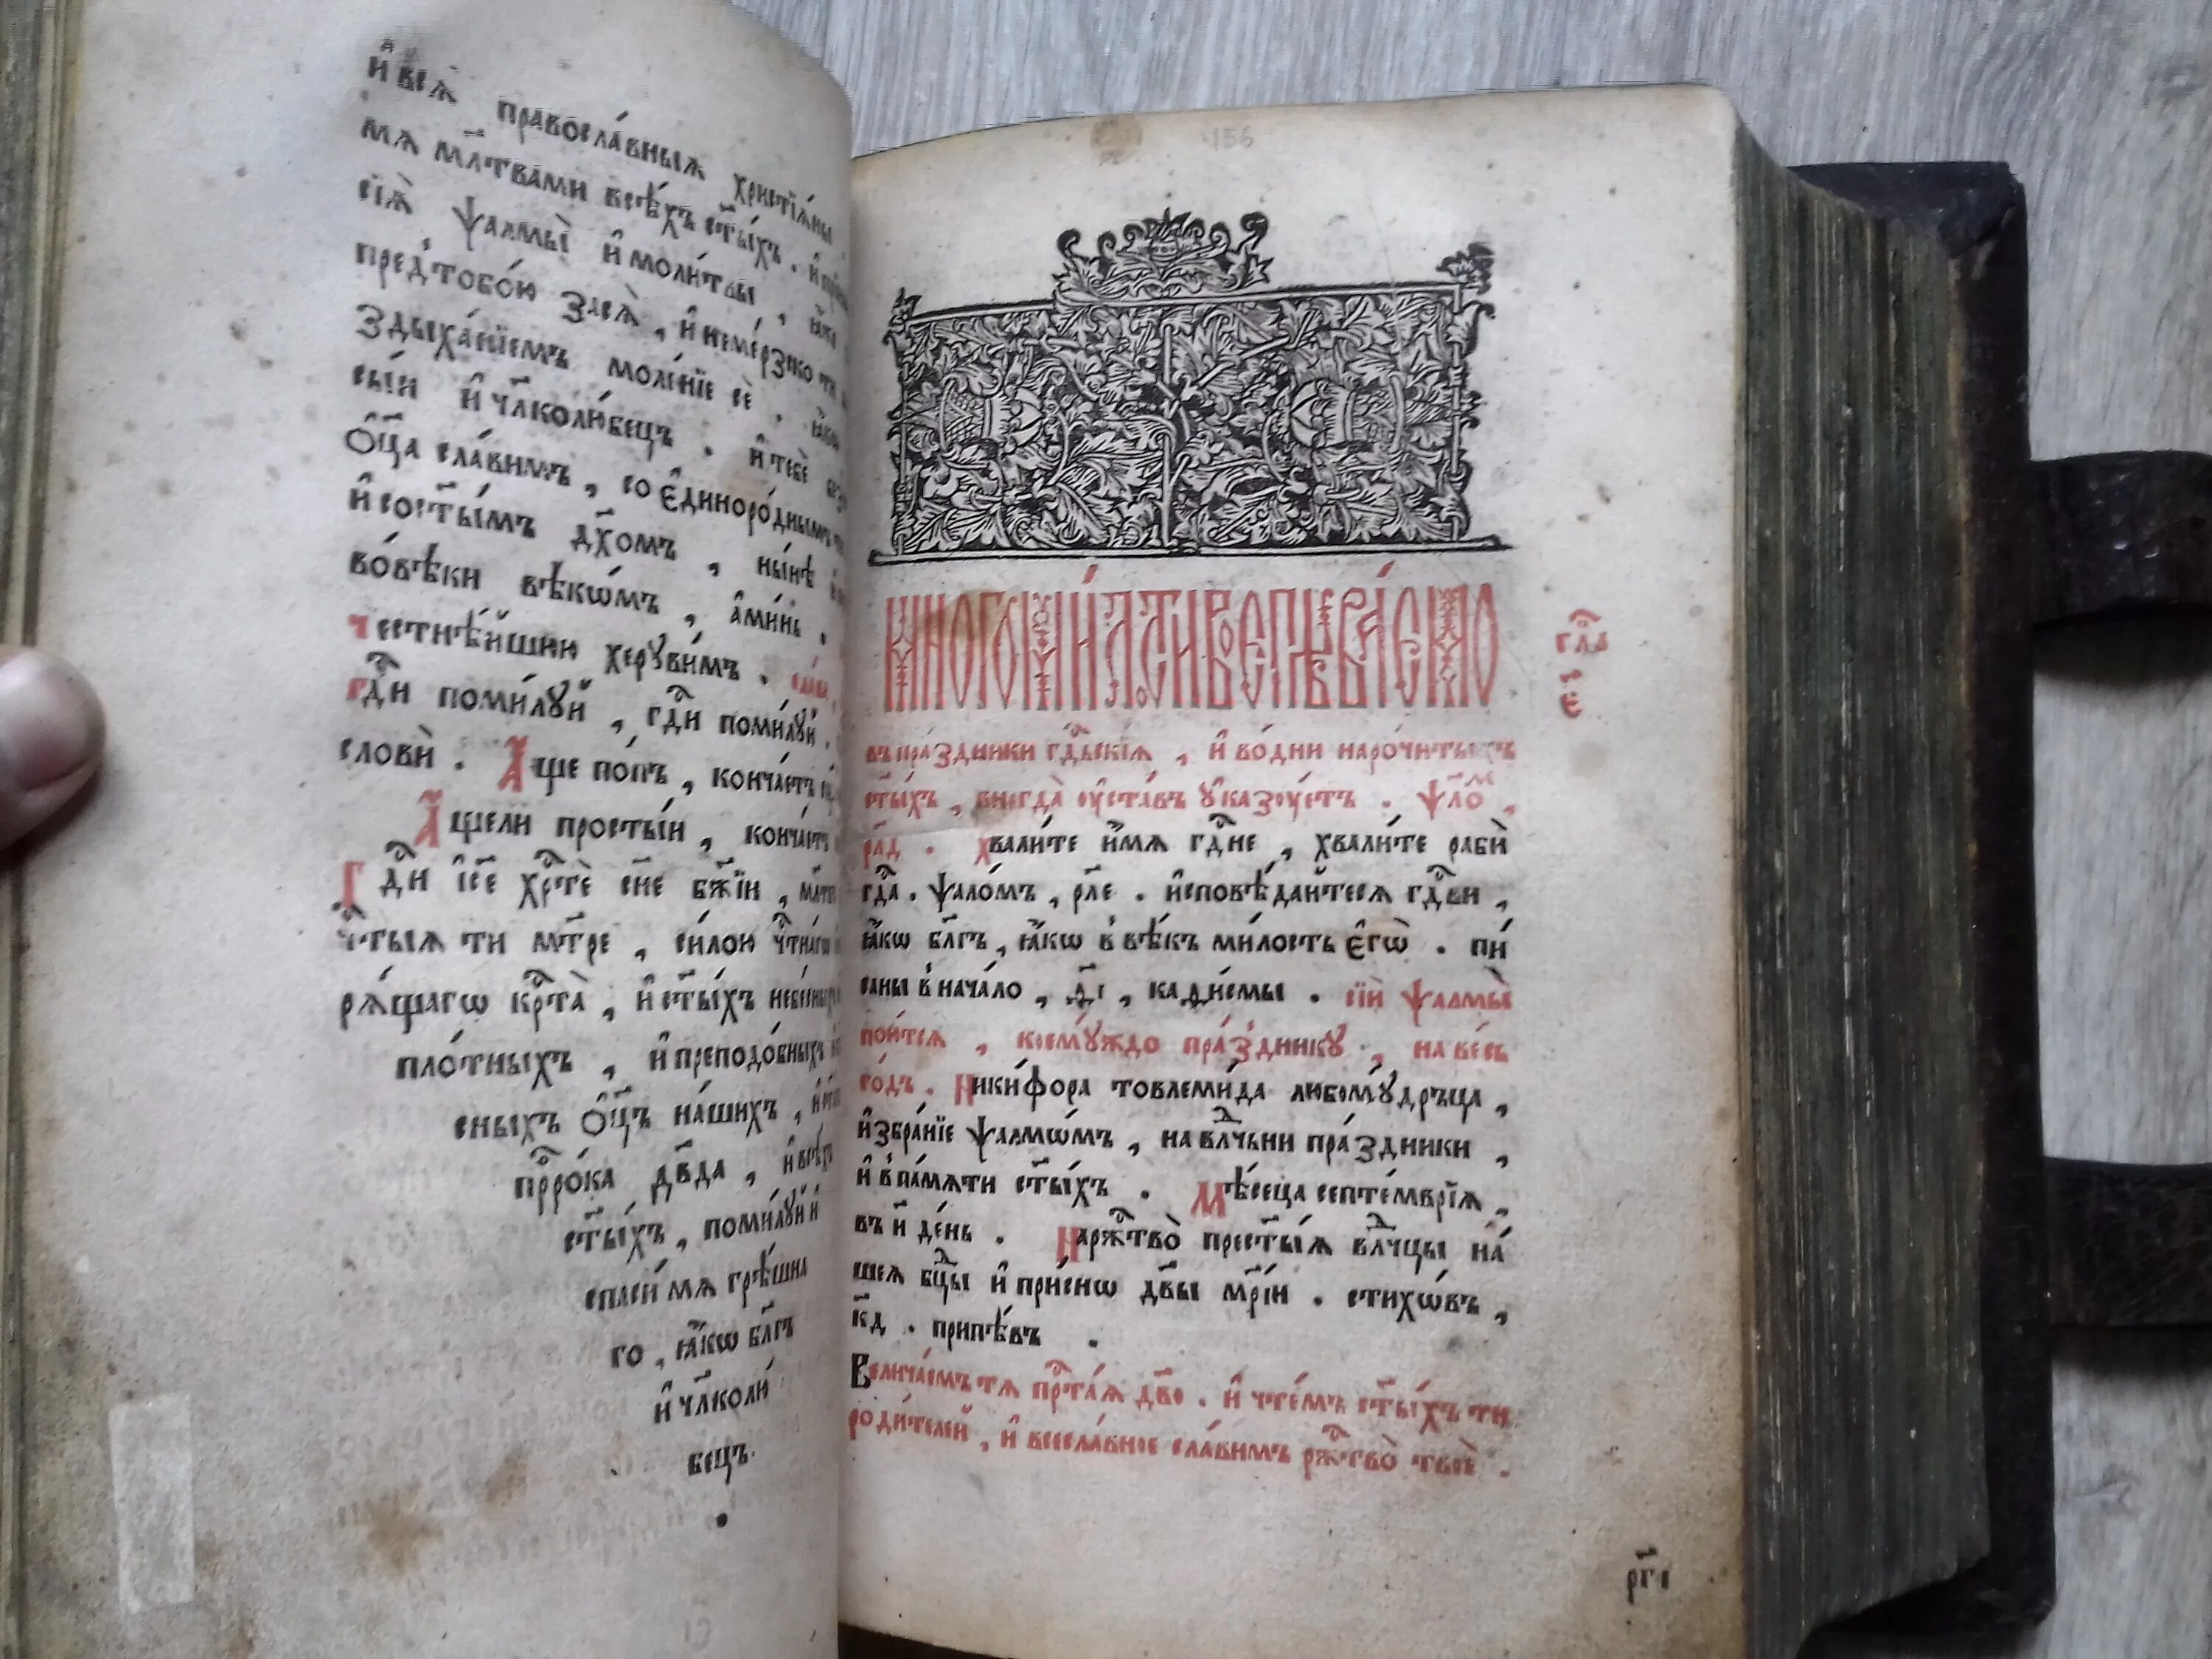 и҆ всѧ̀ правосла́вныѧ хрнстїѧ́ны
мѧ мл҃твами всѣ́хъ ст҃ы́хъ . и҆
сїѧ̀ ѱалмы̀ и҆ моли́твы ,
пред̾тобо́ю зд҃сѧ̀ , и҆ неме́рзско тн
здыха́нїемъ моле́нїе сѐ .
сы́и и҆ чл҃колю́бецъ . и҆ тебѐ
Ѻ҆ц҃а сла́вимъ , со є҆диноро́днымъ
и҆ сост҃ы́мъ дх҃омъ , ны́нѣ
во́вѣки вѣкѡ́мъ , а҆ми́нь .
честнѣ́йшꙋю херꙋви́мъ . сла́ва ,
гдⷭ҇и поми́лꙋй , гдⷭ҇и поми́лꙋй .
слови̂ . А҆́ще по́пъ , конча́етъ
А҆́щели просты́и , конча́етъ
Гдⷭ҇и і҆с҃е хрⷭ҇тѐ сн҃е бж҃їи ,
чⷭ҇тыѧ ти мт҃ре , си́лою чⷭ҇тна́гѡ
рѧ́щагѡ крⷭ҇та̀ , и҆ ст҃ы́хъ
пло́тныхъ , и҆ преподо́бныхъ
сныхъ ѻ҆ц҃ъ на́шихъ ,
прⷪ҇ро́ка дв҃да , и҆ всѣ́хъ
ст҃ы́хъ , поми́лꙋй и҆
спаси́ мѧ грѣ́шна
го , ꙗ҆́кѡ бл҃гъ
и҆ чл҃колю́
бецъ .
156
МНОГОМИ́ЛОСТИВОЕПѢВА́ЕМО
въ пра́здники гдⷭ҇ьскїѧ , и҆ во́дни наро́читыхъ
ст҃ы́хъ , внегда̀ ᲂу҆ста́въ ᲂу҆казꙋ́етъ . ѱало́ⷨ ,
рл҃д . Хвали́те и҆́мѧ гдⷭ҇не , хвали́те рабѝ
гдⷭ҇а . ѱало́мъ , рл҃е . и҆сповѣ́дайтесѧ гдⷭ҇ви ,
ꙗ҆́кѡ бл҃гъ , ꙗ҆́кѡ в̾ вѣ́къ ми́лость є҆гѡ̀ . пи́
саны в̾ нача́ло , д҃і , каѳи́смы . сїѝ ѱалмы̀
пою́тсѧ , коемꙋ́ждо пра́здникꙋ , на ве́сь
го́дъ . Ники́фора товлеми́да любомꙋ́дръца ,
и҆збра́нїе ѱалмѡ́мъ , на влⷣчьни пра́здники ,
и҆ в̾ па́мѧти ст҃ы́хъ . Мѣ́сѧца септе́мврїѧ ,
въ и҃ де́нь . Наржⷭ҇тво̀ прест҃ы́ѧ влⷣчцы на́
шеѧ бцⷣы и҆ при́снѡ дв҃ы мр҃і́и . стихѡ́въ ,
к҃д . припѣ́въ .
Велича́емъ тѧ прⷭ҇та́ѧ дв҃о . и҆ чте́мъ ст҃ы́хъ ти
роди́телей , и҆ всесла́вное сла́вимъ ржⷭ҇тво̀ твоѐ .
глⷡ҇а
є҃і
рг҃і